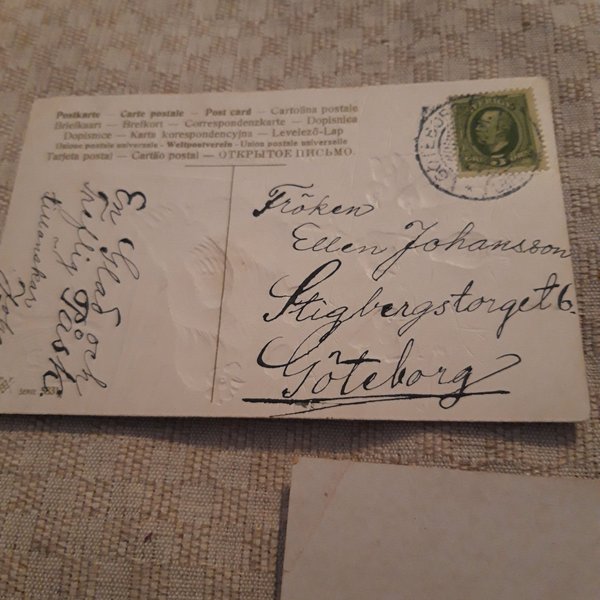 Postkarte — Carte postale — Post card — Cartolina postale
Briefkaart — Brefkort — Correspondenzkarte — Dopisnica
Dopisnice — Karta korespondencyjna — Levelező-Lap
Unione postale universale — Weltpostverein — Union postale universelle
Tarjeta postal — Cartão postal — ОТКРЫТОЕ ПИСЬМО.
SVERIGE
5
Fröken
Ellen Johansson
Stigbergstorget 6.
Göteborg
En Glad och
treflig Påsk.
tillönskar